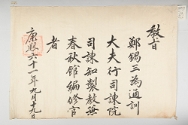 敎旨
鄭錫三爲通訓
大夫行司諫院
司諫知製敎兼
春秋館編修官
者
康熙六十一年九月十九日